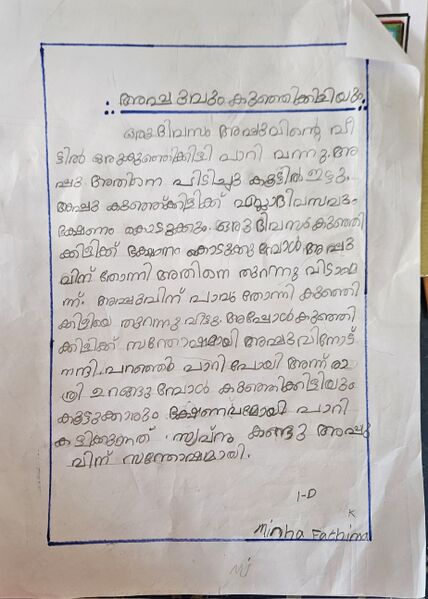 അപ്പുവും കുഞ്ഞിക്കിളിയും
ഒരു ദിവസം അപ്പുവിന്റെ വീ
ട്ടിൽ ഒരു കുഞ്ഞിക്കിളി പാറി വന്നു. അ
പ്പു അതിനെ പിടിച്ചു കൂട്ടിൽ ഇട്ടു.
അപ്പു കുഞ്ഞിക്കിളിക്ക് എല്ലാദിവസവും
ഭക്ഷണം കൊടുക്കും. ഒരു ദിവസം കുഞ്ഞി
ക്കിളിക്ക് ഭക്ഷണം കൊടുക്കുമ്പോൾ അപ്പു
വിന് തോന്നി അതിനെ തുറന്നു വിടാമെ
ന്ന്. അപ്പുവിന് പാവം തോന്നി കുഞ്ഞി
ക്കിളിയെ തുറന്നു വിട്ടു. അപ്പോൾ കുഞ്ഞി
ക്കിളിക്ക് സന്തോഷമായി അപ്പുവിനോട്
നന്ദി പറഞ്ഞ് പാറി പോയി അന്ന് രാ
ത്രി ഉറങ്ങുമ്പോൾ കുഞ്ഞിക്കിളിയും
കൂട്ടുകാരും പാറി
കളിക്കുന്നത് സ്വപ്നം കണ്ടു അപ്പു
വിന് സന്തോഷമായി.
1-D
Minha Fathima K